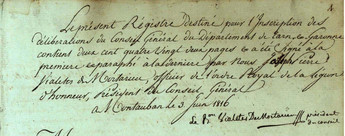 Le présent Registre destiné pour l'Inscription des
délibérations du Conseil Général du Département de Tarn et Garonne
contenant deux cent quatre vingt deux pages a été signé à la
première et paraphé à la dernière par Nous
Vialetes de Mortarieu, officier de l'ordre Royal de la legion
d'honneur, Président du Conseil Général
A Montauban le 3 juin 1816
Le Bon Vialetes De Mortarieu président
du conseil